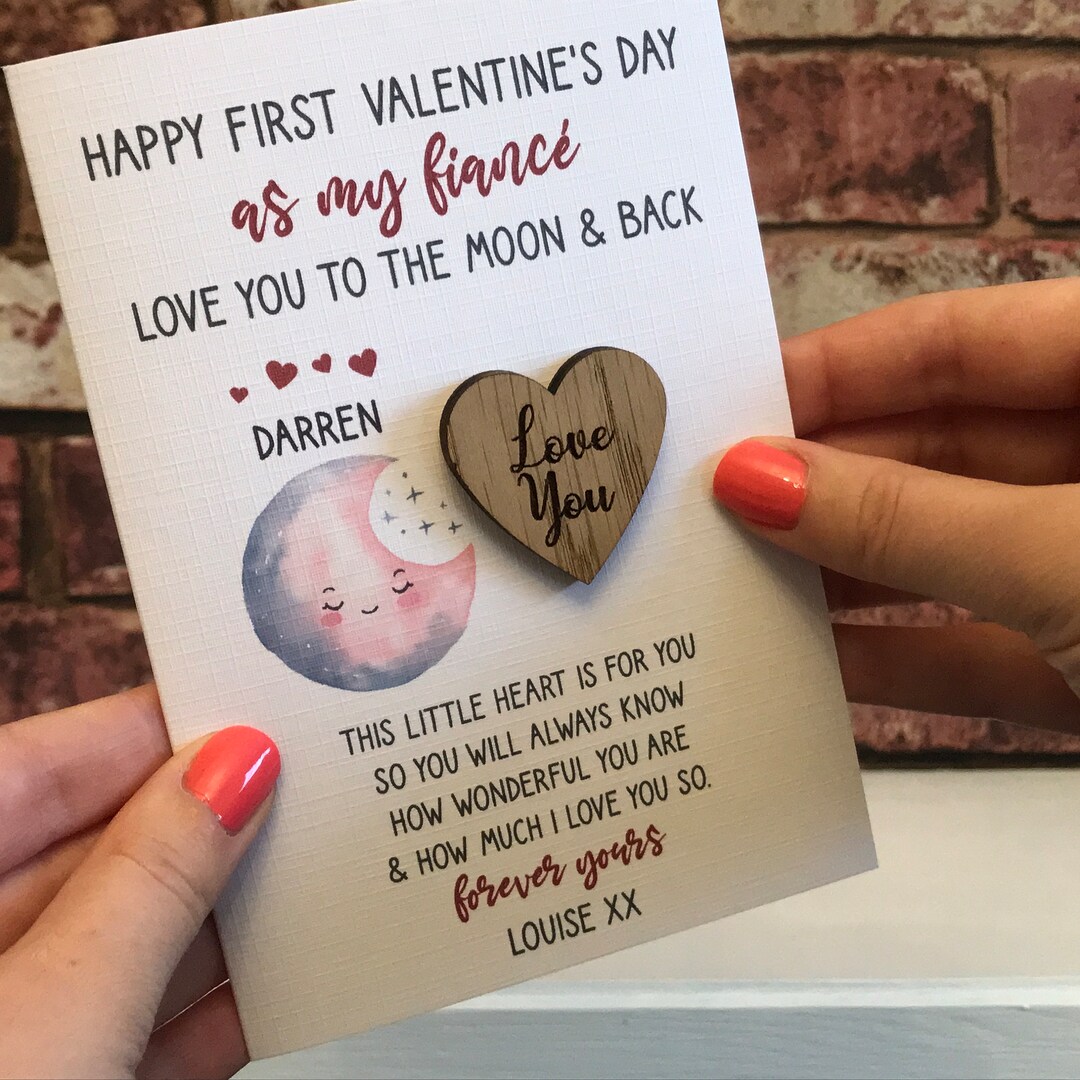 HAPPY FIRST VALENTINE'S DAY
as my fiancé
LOVE YOU TO THE MOON & BACK
DARREN
Love
You
THIS LITTLE HEART IS FOR YOU
SO YOU WILL ALWAYS KNOW
HOW WONDERFUL YOU ARE
& HOW MUCH I LOVE YOU SO.
forever yours
LOUISE XX